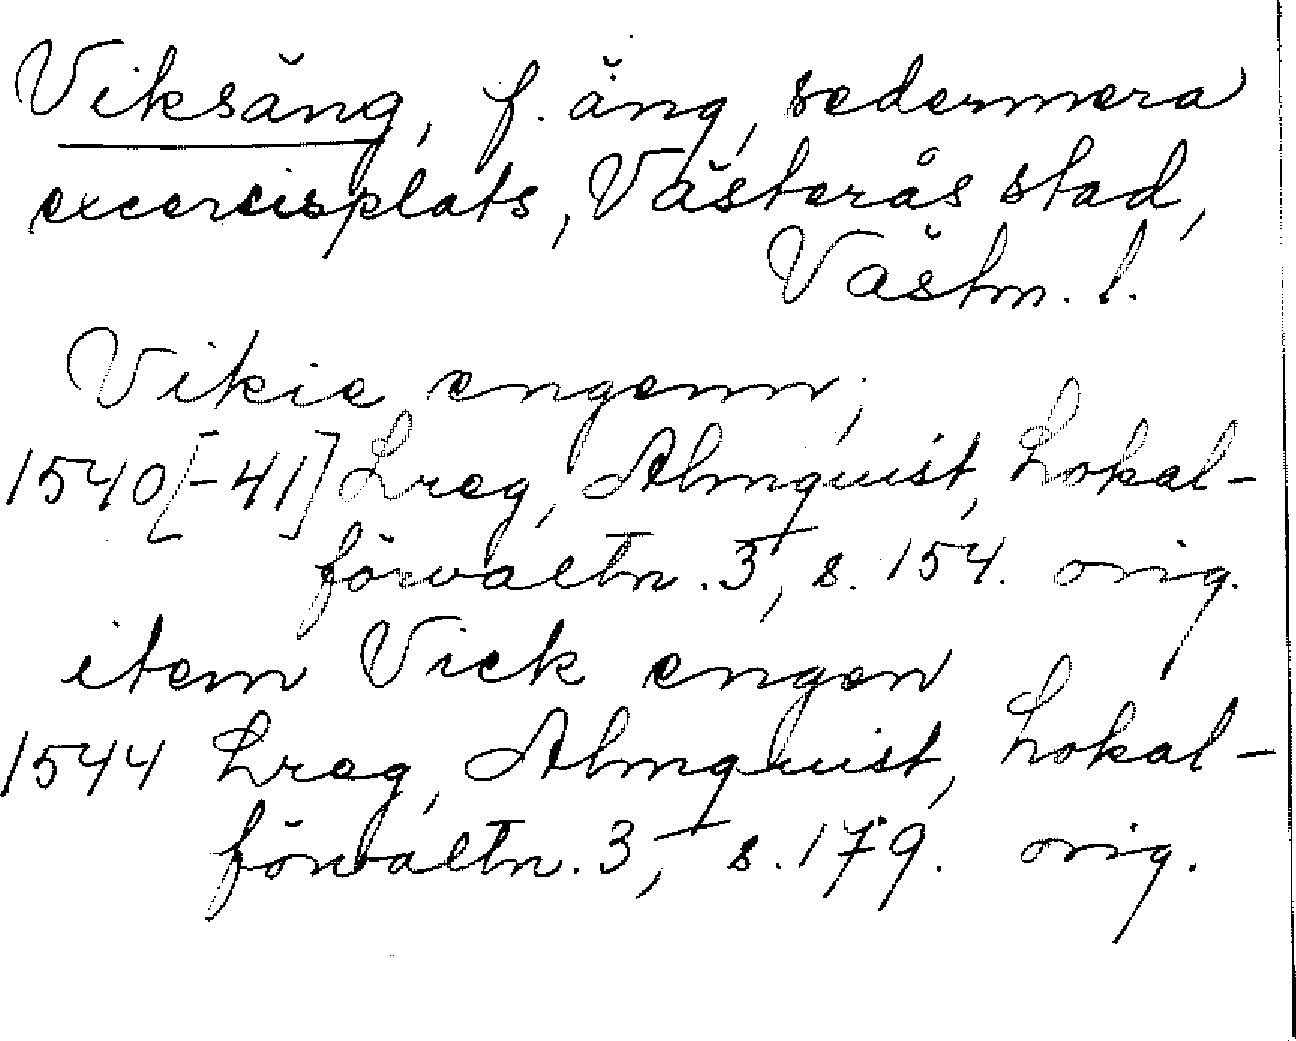 Viksäng, f. äng, sedermera
excercisplats, Västerås stad,
Västm. l.
Vikie engenn;
1540[-41] Lreg, Almquist, Lokal-
förvaltn. 3, s. 154. orig.
item Vick engen
1544 Lreg, Almquist, Lokal-
förvaltn. 3, s. 179. orig.